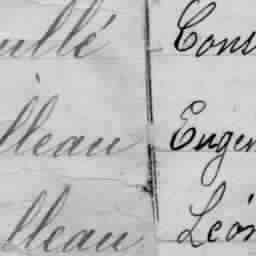 ullé Cons
lleau Eugen
lleau Léon